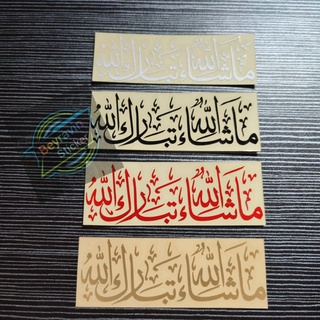 ما شاء الله تبارك الله
ما شاء الله تبارك الله
ما شاء الله تبارك الله
ما شاء الله تبارك الله
Beyravin
Sticker